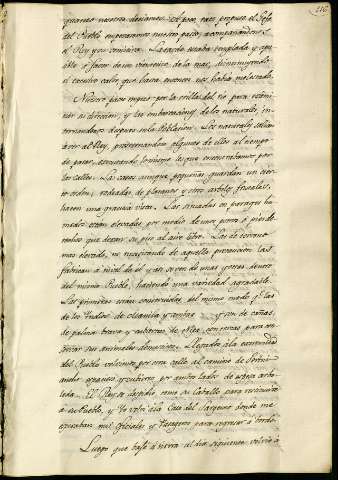 216
quantas nuestra deseamos. A poco rato propuso el Gefe
del Pueblo empezaramos nuestro paseo, acompañandonos
el Rey y su comitiva. La tarde estaba templada y apa-
cible á favor de un vientecico de la mar, disminuyendo
el excesivo calor, que hasta entonces nos habia molestado.
Nuestro paseo empezó por la orilla del rio para exâmi-
nar su direccion, y las embarcaciones de los naturales, in-
ternandonos despues en la Poblacion. Los naturales salian
á ver al Rey, presentandose algunos de ellos al tiempo
de pasar, executando lo mismo los que encontrabamos por
las calles. Las casas aunque pequeñas guardan un cier-
to orden; rodeadas de platanos y otros arboles frutales,
hacen una graciosa vista. Las situadas en parages hu-
medos estan elevadas por medio de unos postes ó pies de-
rechos que dexan su piso al aire libre. Las de terreno
mas elevado, no necesitando de aquella precaucion las
fabrican á nivel de él y asi se ven de unas y otras dentro
del mismo Pueblo, haciendo una variedad agradable.
Las primeras estan construidas del mismo modo q.e las
de los Indios de y son de cañas,
de palma brava y cubiertas de Nipa, con cercas para en-
cerrar sus animales domesticos. Llegados á la extremidad
del Pueblo volvimos por otra calle al camino de
ancho espacioso y cubierto por ambos lados de espesa arbo-
leda. El Rey se despidió tomó su Caballo para restituirse
á su Pueblo, y Yo volví á la Casa del Sargento donde me
esperaban mis Oficiales y Pasageros para regresar á bordo.
Luego que baxé á tierra al dia siguiente volvió á